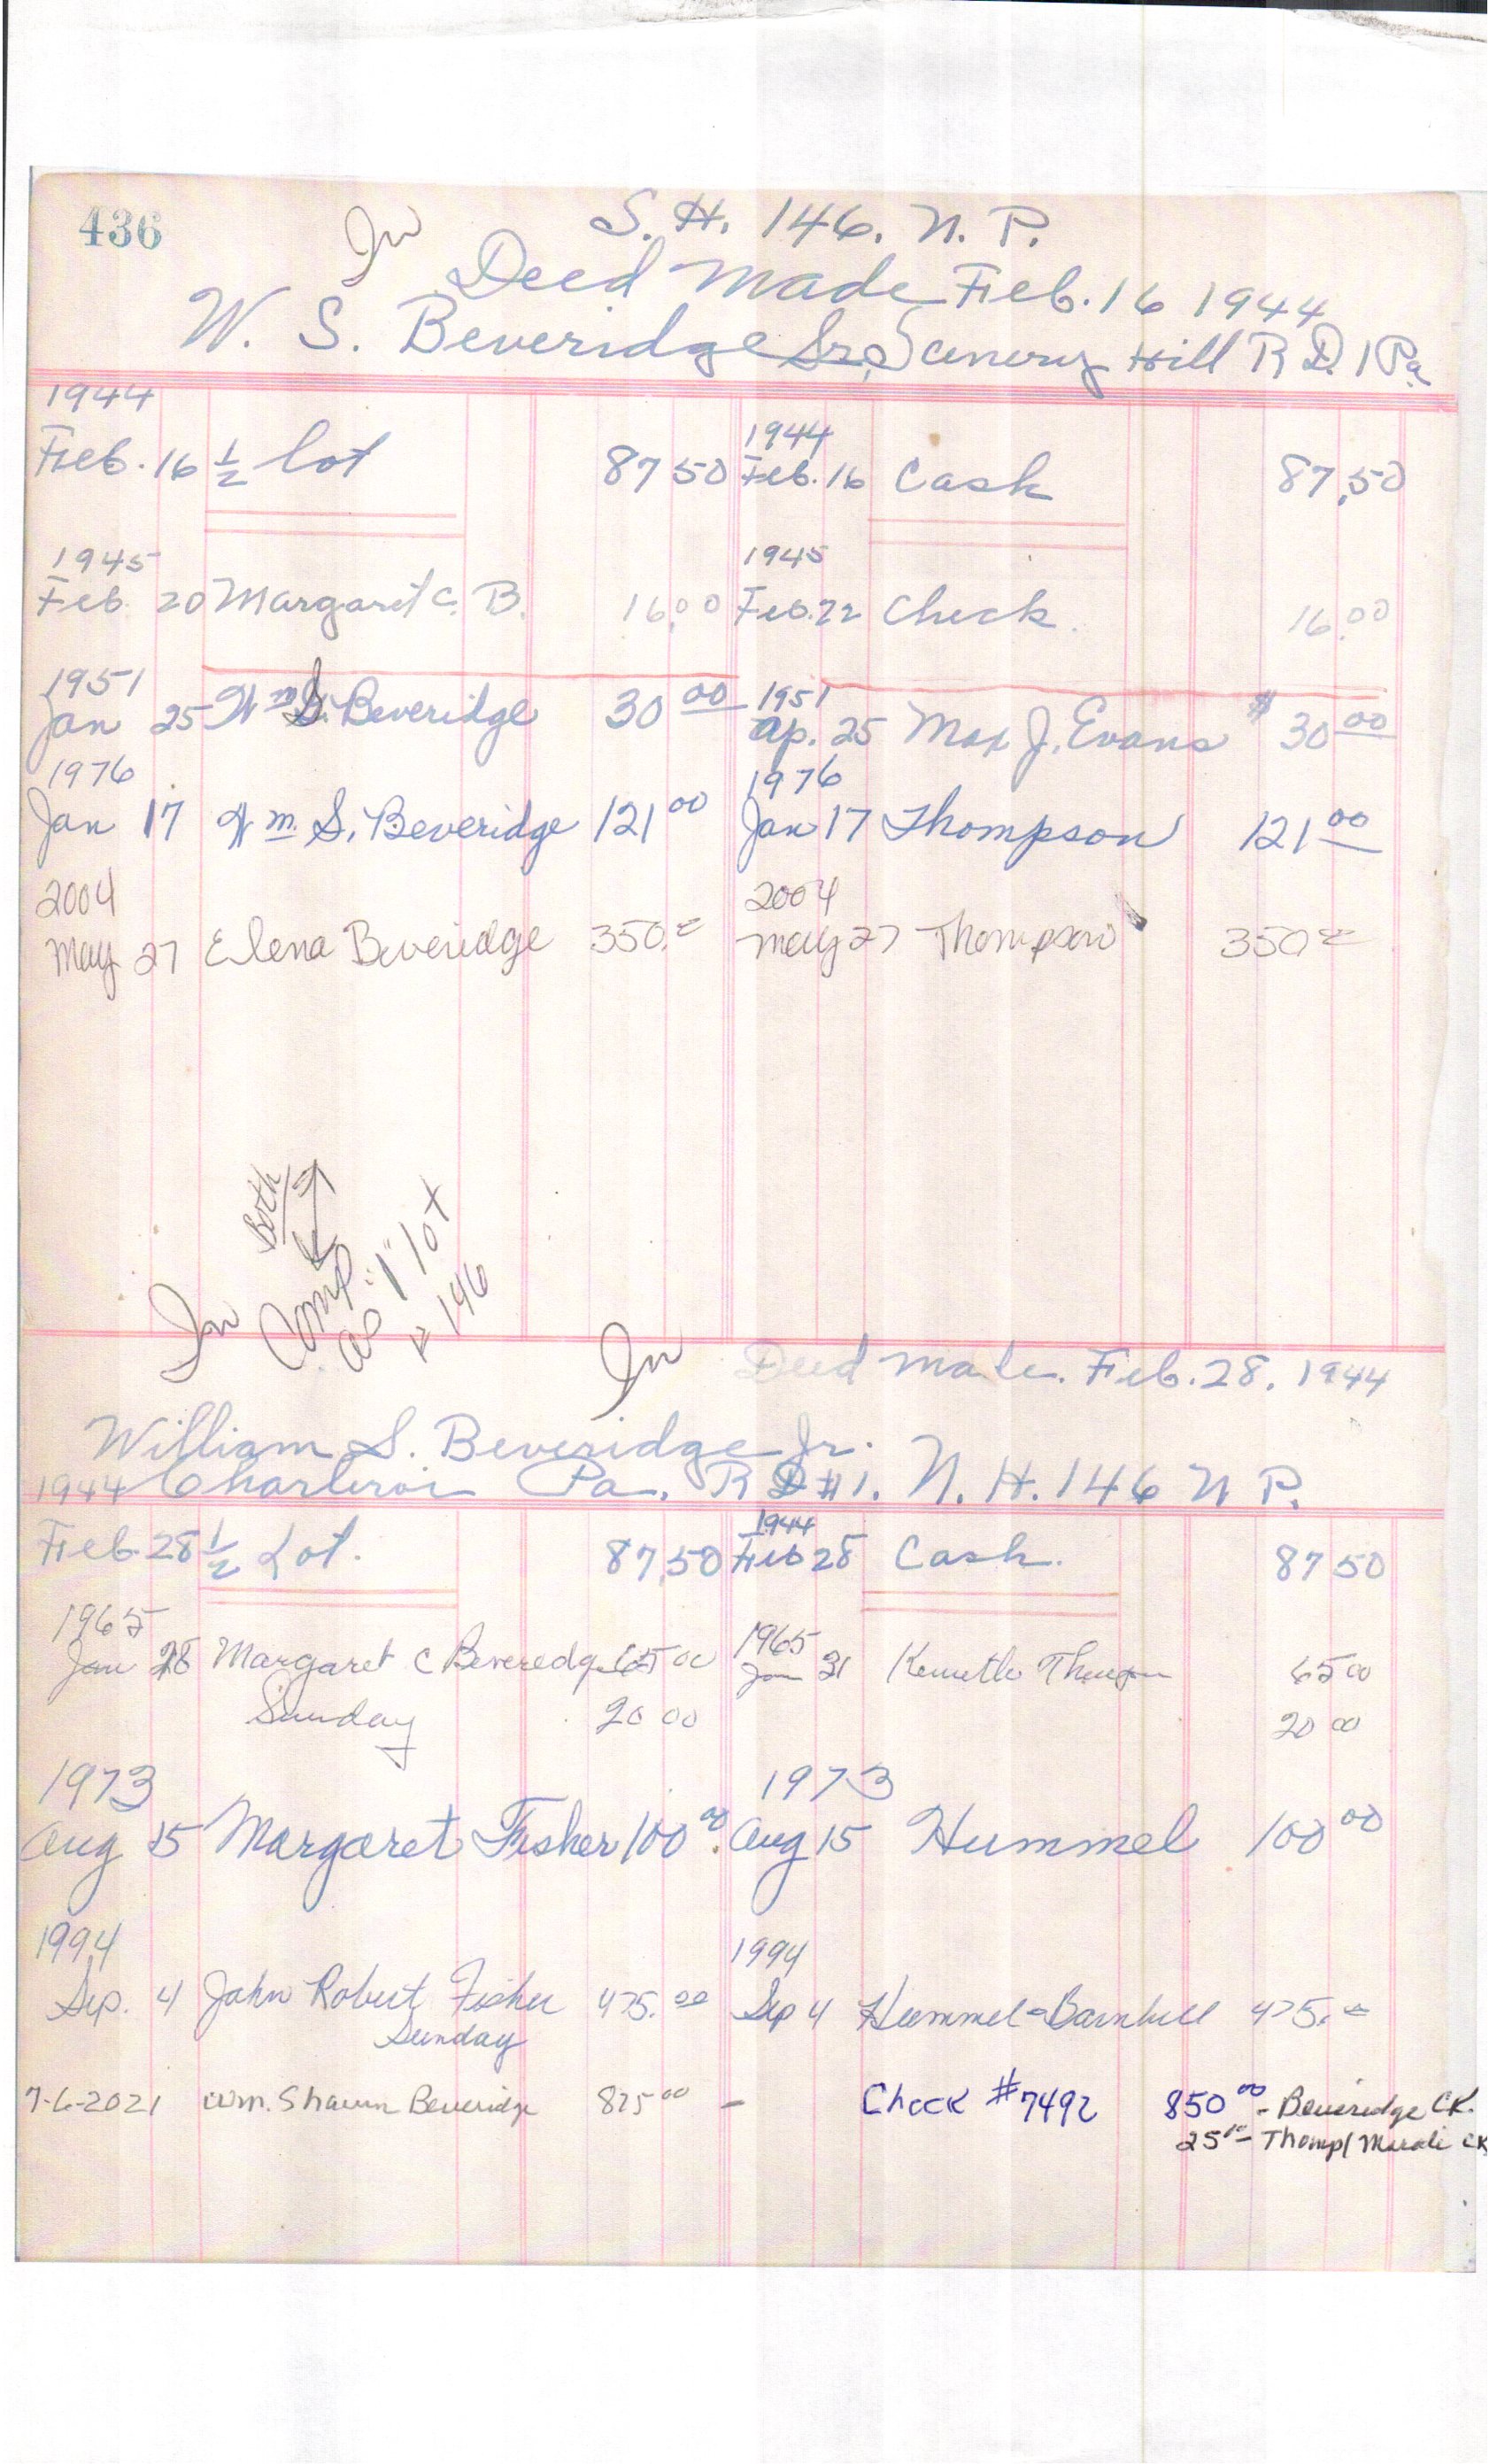 436
In
S. H. 146. N. P.
Deed Made Feb. 16 1944
W. S. Beveridge Sr. Scenery Hill R D. 1 Pa
1944
Feb. 16 ½ lot 87 50 1944 Feb. 16 Cash 87.50
1945
Feb. 20 Margaret C. B. 16.00 1945 Feb. 22 Check. 16.00
1951
Jan 25 Wm S. Beveridge 30 00 1951 Ap. 25 Max J. Evans $ 30 00
1976
Jan 17 Wm. S. Beveridge 121 00 1976 Jan 17 Thompson 121 00
2004
May 27 Elena Beveridge 350. 2004 May 27 Thompson 350
Both
Comp.
as "1" lot
# 146
In
In
Deed made. Feb. 28. 1944
William S. Beveridge Jr.
1944 Charleroi Pa. R D #1. N. H. 146 N P.
Feb. 28 ½ Lot. 87.50 1944 Feb 28 Cash. 87 50
1965
Jan 28 Margaret C Beveredge 65 00 1965 Jan 31 Kenneth 65 00
Sunday 20 00 20 00
1973
Aug 15 Margaret Fisher 100 00 1973 Aug 15 Hummel 100 00
1994
Sep. 4 John Robert Fisher 475.00 1994 Sep 4 Hummel-Barnhill 475.
Sunday
7-6-2021 Wm. Shawn Beveridge 875 00 - Check #7492 850 00 - Beveridge CK.
25 - Thomp/ CK